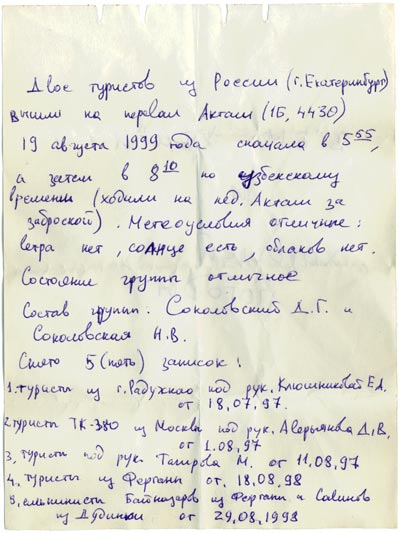 Двое туристов из России (г. Екатеринбург)
вышли на перевал Акташ (1Б, 4430)
19 августа 1999 года сначала в 5 55,
а затем в 8 10 по узбекскому
времени (ходили на лед. Акташ за
заброской). Метеоусловия отличные:
ветра нет, солнце есть, облаков нет.
Состояние группы отличное
Состав группы: Соколовский Д.Г. и
Соколовская Н.В.
Снято 5 (пять) записок:
1. туристы из г. Радужного под рук. Клюшниковой Е.А.
от 18.07.97.
2. туристы ТК-380 из Москвы под рук. Аверьянова Д.В.
от 1.08.97
3. туристы под рук. Таирова М. от 11.08.97
4. туристы из Ферганы от. 18.08.98
5. альпинисты из Ферганы и Савинов
из Дудинки от 29.08.1998